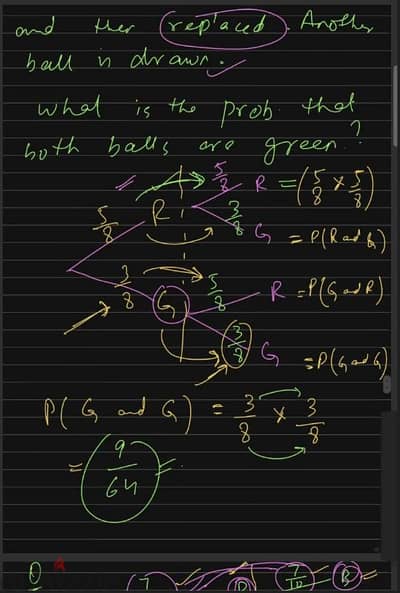 and then replaced. Another
ball is drawn.
What is the prob. that
both balls are green?
5/8 R = (5/8 × 5/8)
5/8 R
3/8 G = P(R and G)
3/8 G
5/8 R = P(G and R)
3/8 G = P(G and G)
P(G and G) = 3/8 × 3/8
= 9/64 =
Q
7 R 7/10 B